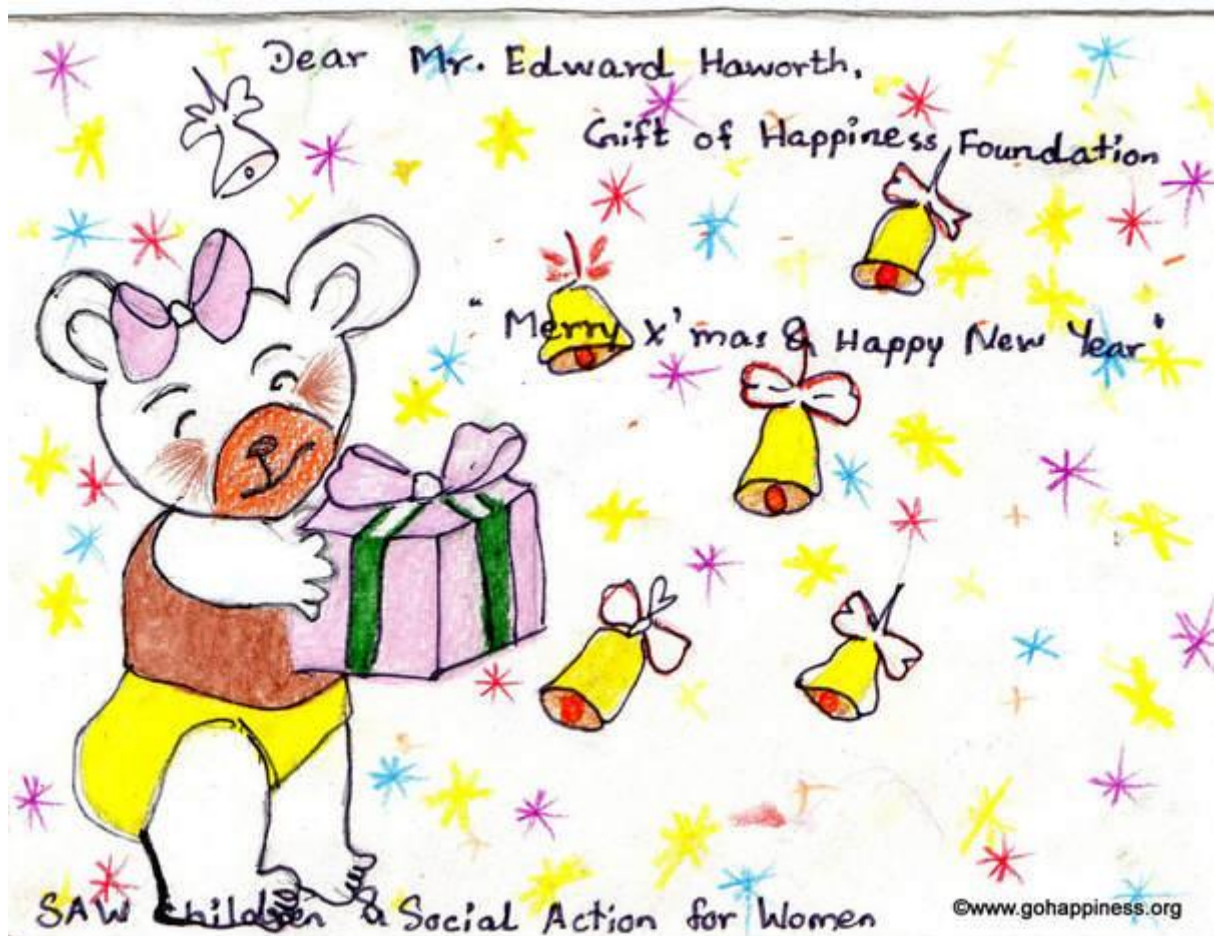 Dear Mr. Edward Haworth,
Gift of Happiness Foundation
"Merry X'mas & Happy New Year"
SAW Children & Social Action for Women
©www.gohappiness.org